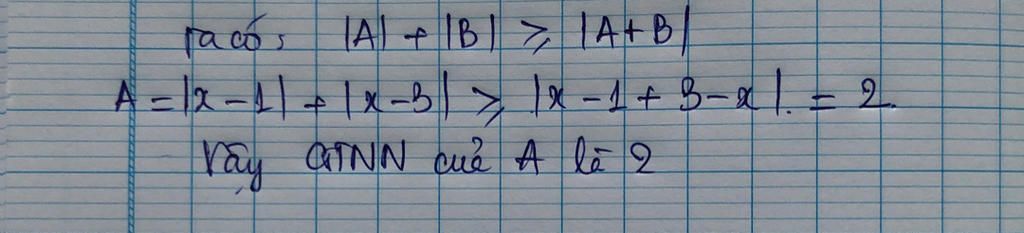 Ta có: |A| + |B| ⩾ |A+B|
A = |x - 1| + |x - 3| ⩾ |x - 1 + 3 - x|. = 2.
Vậy GTNN của A là 2